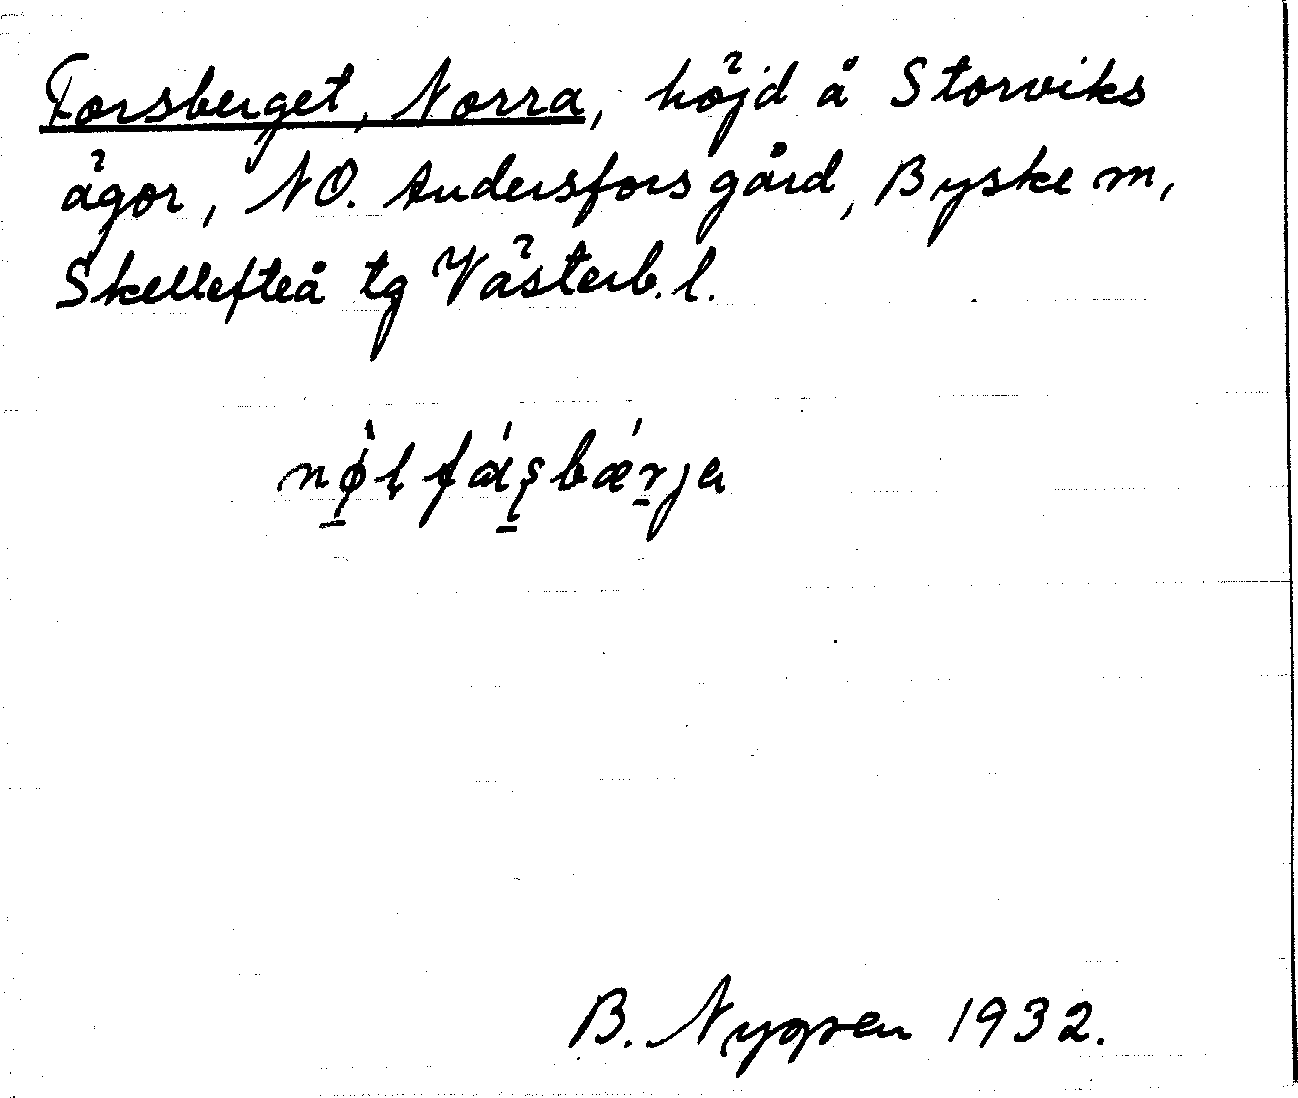 Forsberget, Norra, höjd å Storviks
ägor, NO. Andersfors gård, Byske sn,
Skellefteå tg Västerb. l.
B. Nygren 1932.